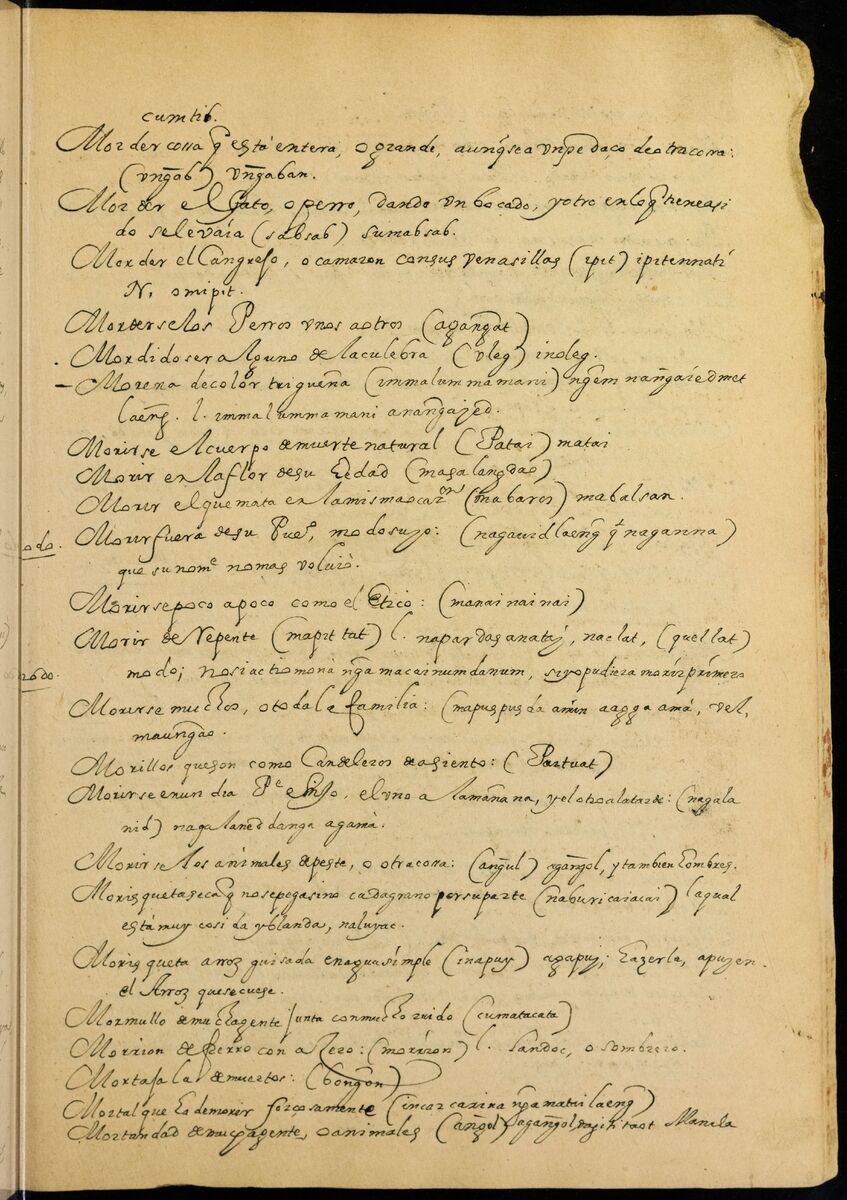 cumtib.
Morder cossa q̃ està entera, o grande, aunq̃ sea vn pedaço de otra cossa:
(vng̃ab) vng̃aban.
Morder el Gato, o perro, dando vn bocado, y otro en lo q̃ tiene asi
do se levaía (sabsab) sumabsab.
Morder el Cangrejo, o camaron con sus venasillas (ipit) ipitennatí
N, omipit.
Morderse los Perros vnos a otros (agang̃at)
Mordido ser alguno de la culebra (vleg) inoleg.
Morena de color trigueña (immalummamani) ng̃em nang̃aiedmet
laeng̃. l. immalummamani arang̃ajed.
Morirse el cuerpo de muerte natural (Patai) matai
Morir en la flor de su Edad (masalangdao)
Morir el que mata en la misma ocaz.on (mabaros) mabalsan.
Morir fuera de su Pueo, modo sujo: (nagauid laeng̃ q̃ naganna)
que su nome nomas volviò.
Morirse poco a poco como el Etico: (manainainai)
Morir de Repente (mapittat) l. napardas anataj, naclat, (quellat)
modo; nosiactiomonà ng̃a macainumdanum, si yo pudiera morir primero
Morirse muchos, o toda la familia: (mapuspusda amin aagga amà, vel,
maung̃ao.
Morillos que son como Candeleros de asiento: (Partuat)
Morirse en un dia Pe e hijo, el vno a la mañana, y el otro a la tarde: (nagala
nid) nagalaned danga agamà.
Morirse los animales de peste, o otra cossa: (ang̃ul) agang̃ol, y tambien hombres.
Morisqueta seca q̃ no se pega sino cada grano por su parte (naburicaiacai) la qual
està muy cosida y blanda, naluyac.
Morisqueta arroz guisada en agua simple (inapuy) agapuj; hazerla, apujen.
el Arroz que se cuese.
Mormullo de mucha gente junta con mucho ruido (cumatacata)
Morrion de fierro con asero: (morrion) l. sandoc, o sombrero.
Mortaja la de muertos: (bong̃on)
Mortal que ha de morir forçosamente (incarcarira ng̃a matai laeng̃)
Mortandad de mucha gente, o animales (ang̃ol) agang̃ol Manila